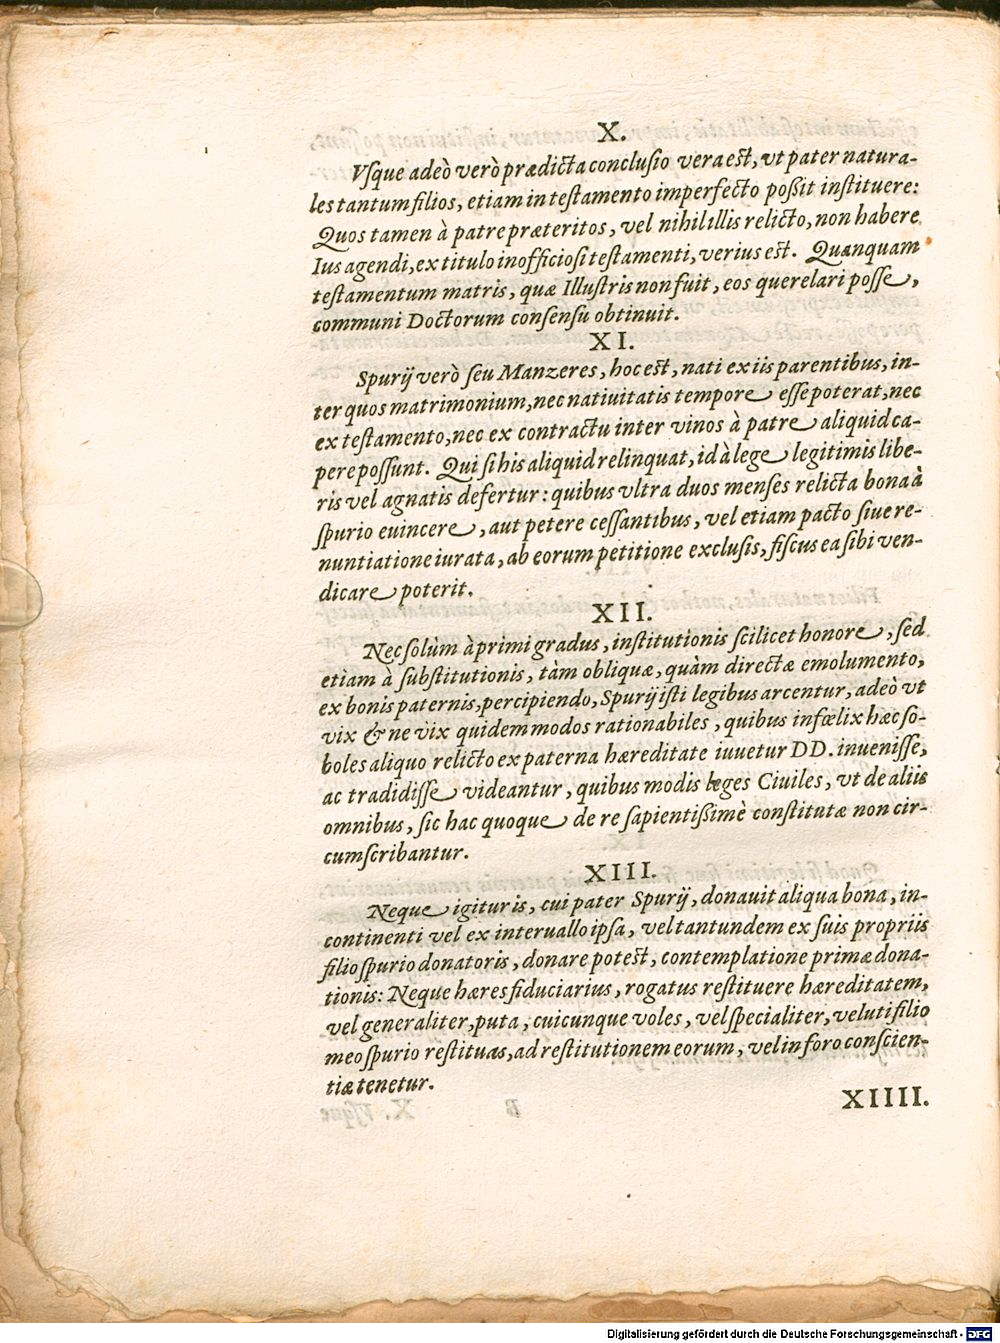 X.
Vsque adeò verò prædicta conclusio vera est, vt pater natura-
les tantum filios, etiam in testamento imperfecto poßit instituere:
Quos tamen à patre præteritos, vel nihil illis relicto, non habere
Ius agendi, ex titulo inofficiosi testamenti, verius est. Quanquam
testamentum matris, quæ Illustris non fuit, eos querelari posse,
communi Doctorum consensu obtinuit.
XI.
Spurij verò seu Manzeres, hoc est, nati ex iis parentibus, in-
ter quos matrimonium, nec natiuitatis tempore esse poterat, nec
ex testamento, nec ex contractu inter vinos à patre aliquid ca-
pere possunt. Qui si his aliquid relinquat, id à lege legitimis libe-
ris vel agnatis defertur: quibus vltra duos menses relicta bona à
spurio euincere, aut petere cessantibus, vel etiam pacto siue re-
nuntiatione iurata, ab eorum petitione exclusis, fiscus ea sibi ven-
dicare poterit.
XII.
Nec solùm à primi gradus, institutionis scilicet honore, sed
etiam à substitutionis, tàm obliquæ, quàm directæ emolumento,
ex bonis paternis, percipiendo, Spurij isti legibus arcentur, adeò vt
vix & ne vix quidem modos rationabiles, quibus infœlix hæc so-
boles aliquo relicto ex paterna hæreditate iuuetur DD. inuenisse,
ac tradidisse videantur, quibus modis leges Ciuiles, vt de aliis
omnibus, sic hac quoque de re sapientißimè constitutæ non cir-
cumscribantur.
XIII.
Neque igitur is, cui pater Spurij, donauit aliqua bona, in-
continenti vel ex interuallo ipsa, vel tantundem ex suis propriis
filio spurio donatoris, donare potest, contemplatione primæ dona-
tionis: Neque hæres fiduciarius, rogatus restituere hæreditatem,
vel generaliter, puta, cuicunque voles, vel specialiter, veluti filio
meo spurio restituas, ad restitutionem eorum, vel in foro conscien-
tiæ tenetur.
XIIII.
Digitalisierung gefördert durch die Deutsche Forschungsgemeinschaft - DFG